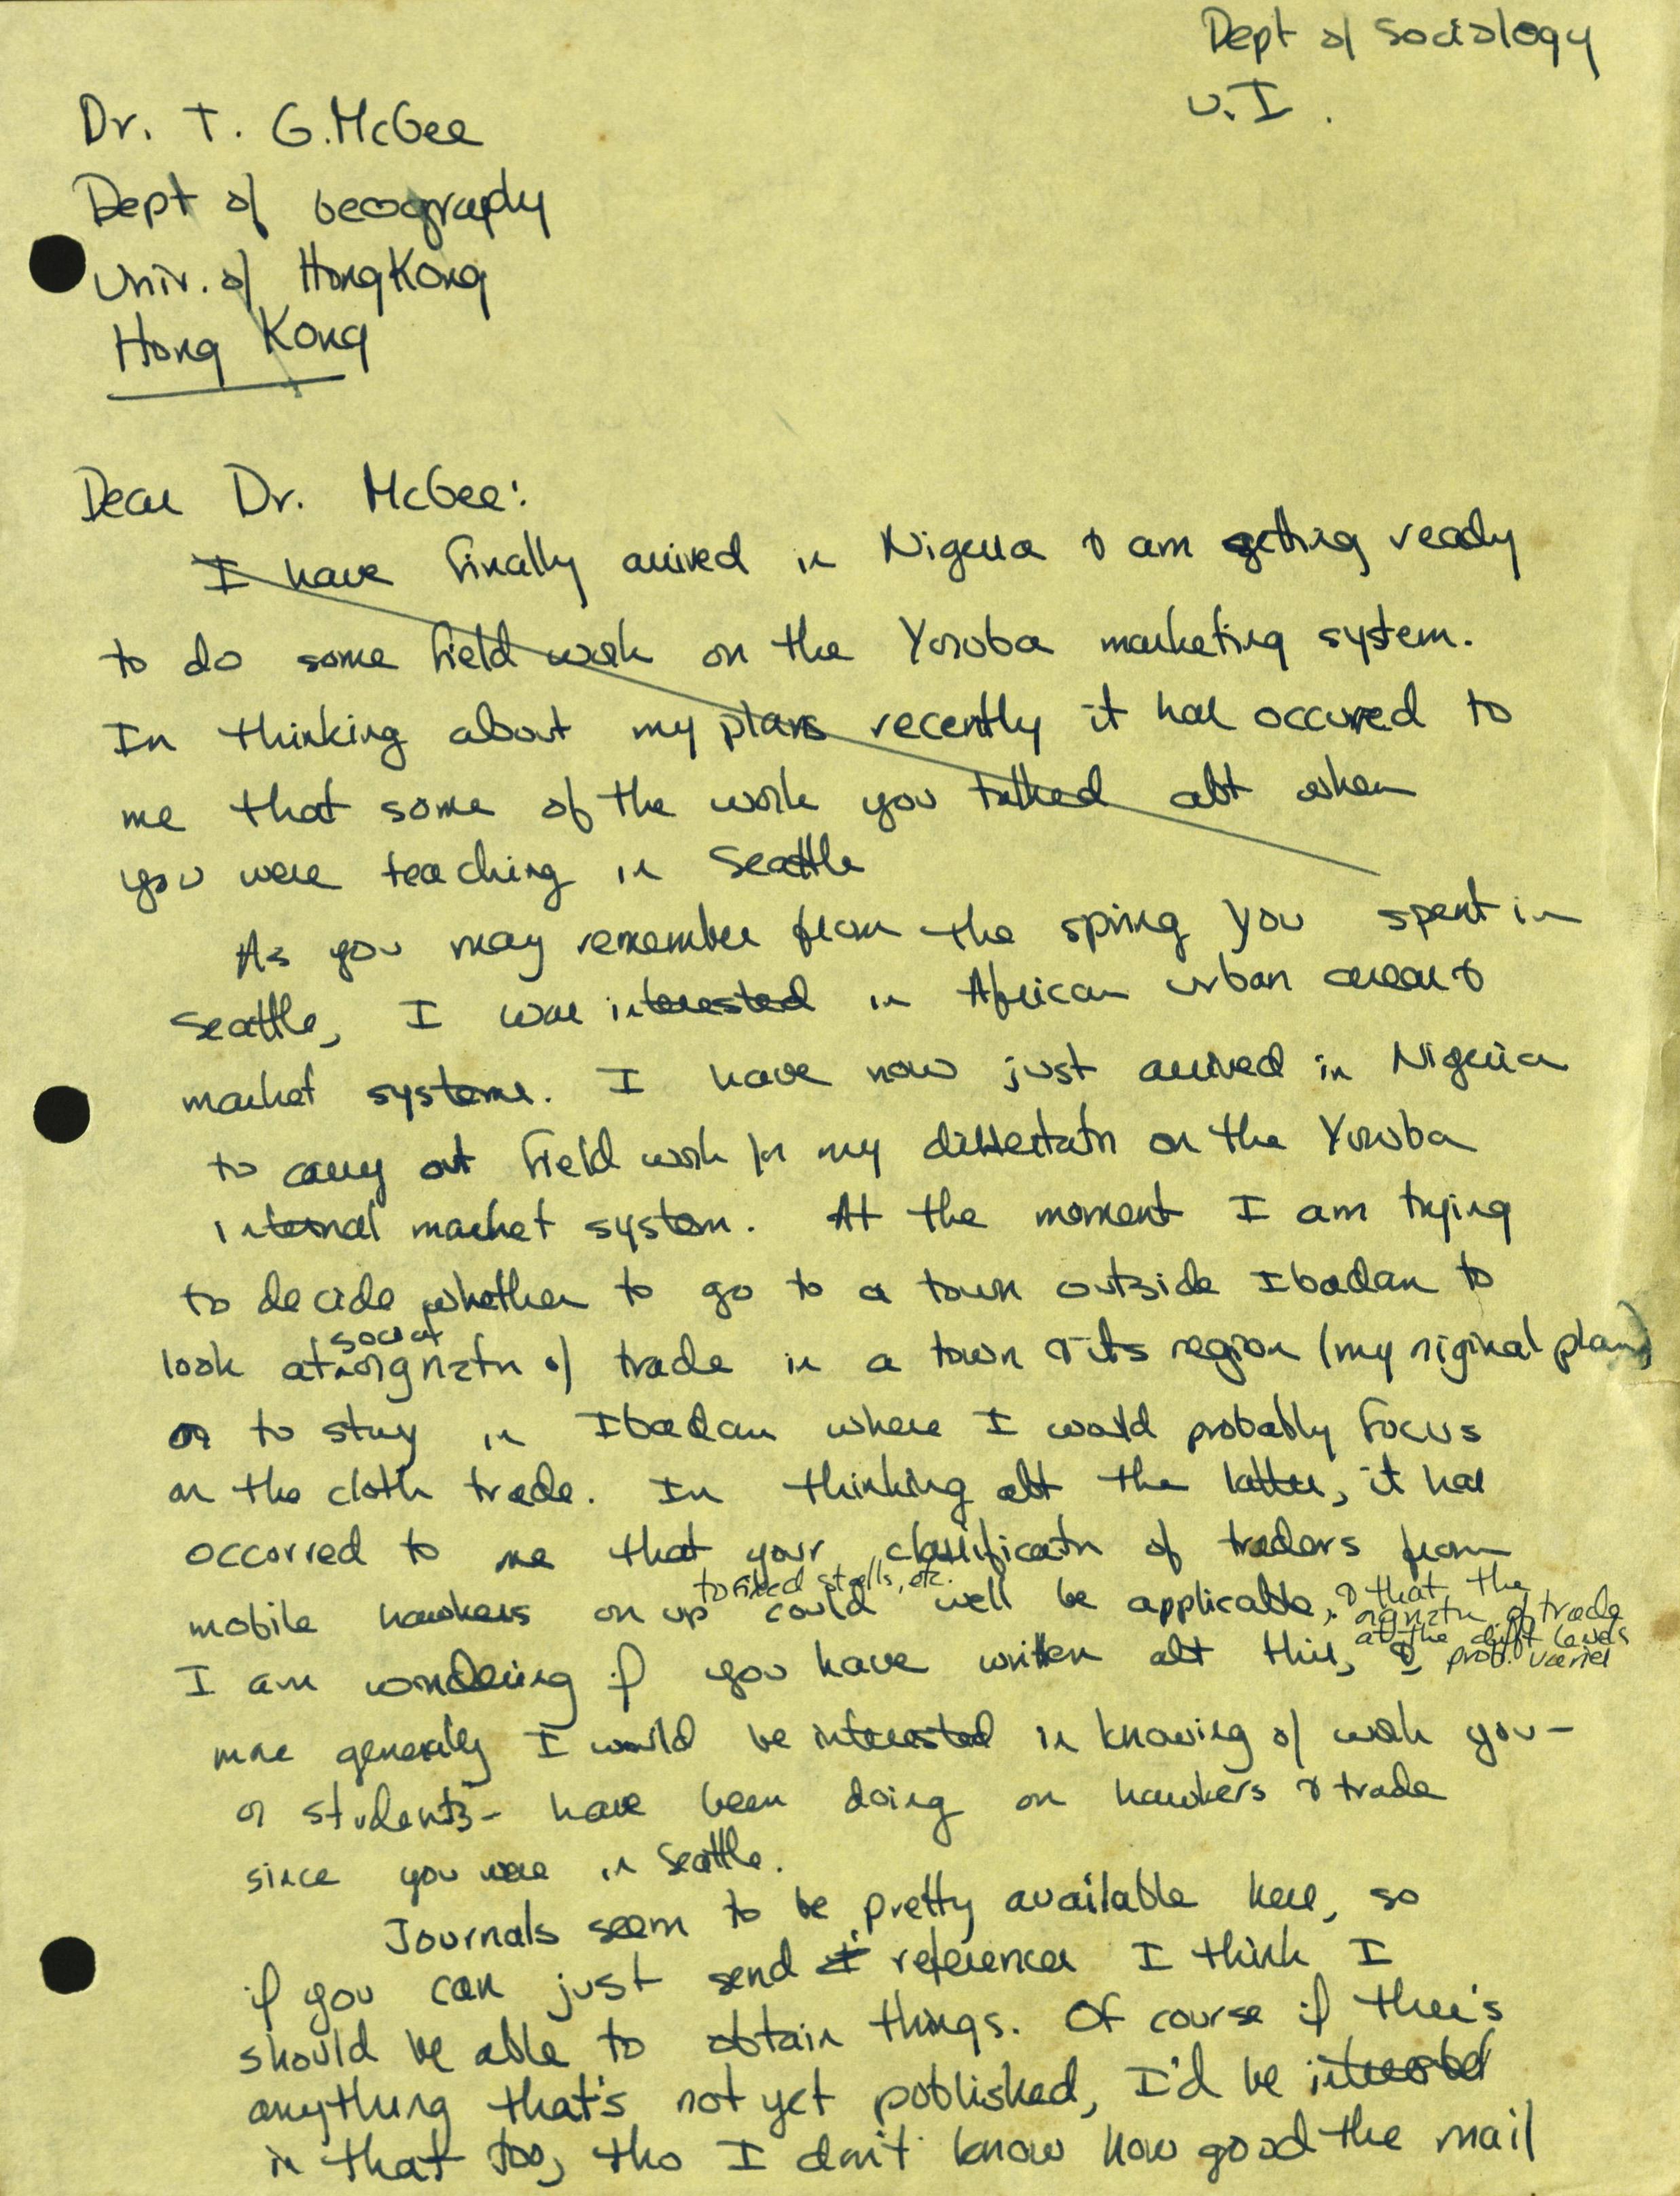 Dept of Sociology
U.I.
Dr. T. G. McGee
Dept of Geography
Univ. of Hong Kong
Hong Kong
Dear Dr. McGee:
I have finally arrived in Nigeria & am getting ready
to do some field work on the Yoruba marketing system.
In thinking about my plans recently it has occured to
me that some of the work you talked abt when
you were teaching in Seattle
As you may remember from the spring you spent in
Seattle, I was interested in African urban areas &
market systems. I have now just arrived in Nigeria
to carry out field work for my dissertatn on the Yoruba
internal market system. At the moment I am trying
to decide whether to go to a town outside Ibadan to
social
look at orgnztn of trade in a town & its region (my original plan)
or to stay in Ibadan where I would probably focus
on the cloth trade. In thinking abt the latter, it has
occurred to me that your classificatn of traders from
to fixed stalls, etc.
mobile hawkers on up could well be applicable, & that the
orgnztn of trade
at the diff levels
prob. varies
I am wondering if you have written abt this, &
more generally I would be interested in knowing of work you-
or students- have been doing on hawkers & trade
since you were in Seattle.
Journals seem to be pretty available here, so
if you can just send references I think I
should be able to obtain things. Of course if there's
anything that's not yet published, I'd be interested
in that too, tho I don't know how good the mail